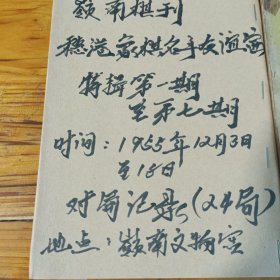 嶺南棋刊
穗港象棋名手友誼賽
特輯第一期
至第七期
时间：1955年12月3日
至18日
对局记录(24局)
地点：嶺南文物宮